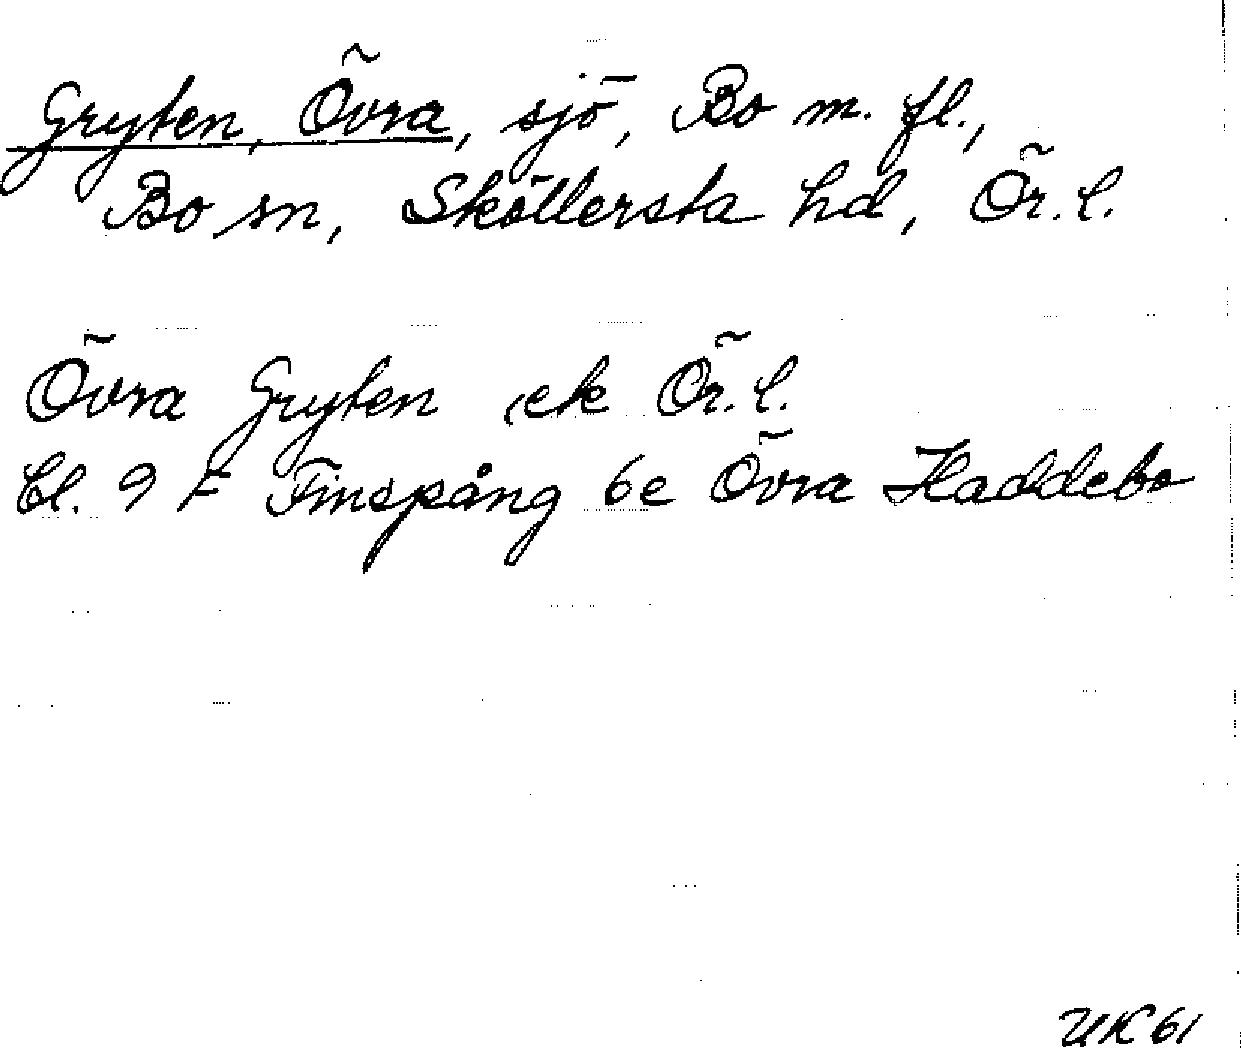 Gryten, Övra, sjö, Bo m. fl.,
Bo sn, Sköllersta hd, Ör. l.
Övra Gryten ek Ör. l.
Bl. 9 F Finspång 6e Övra Haddebo
UK 61